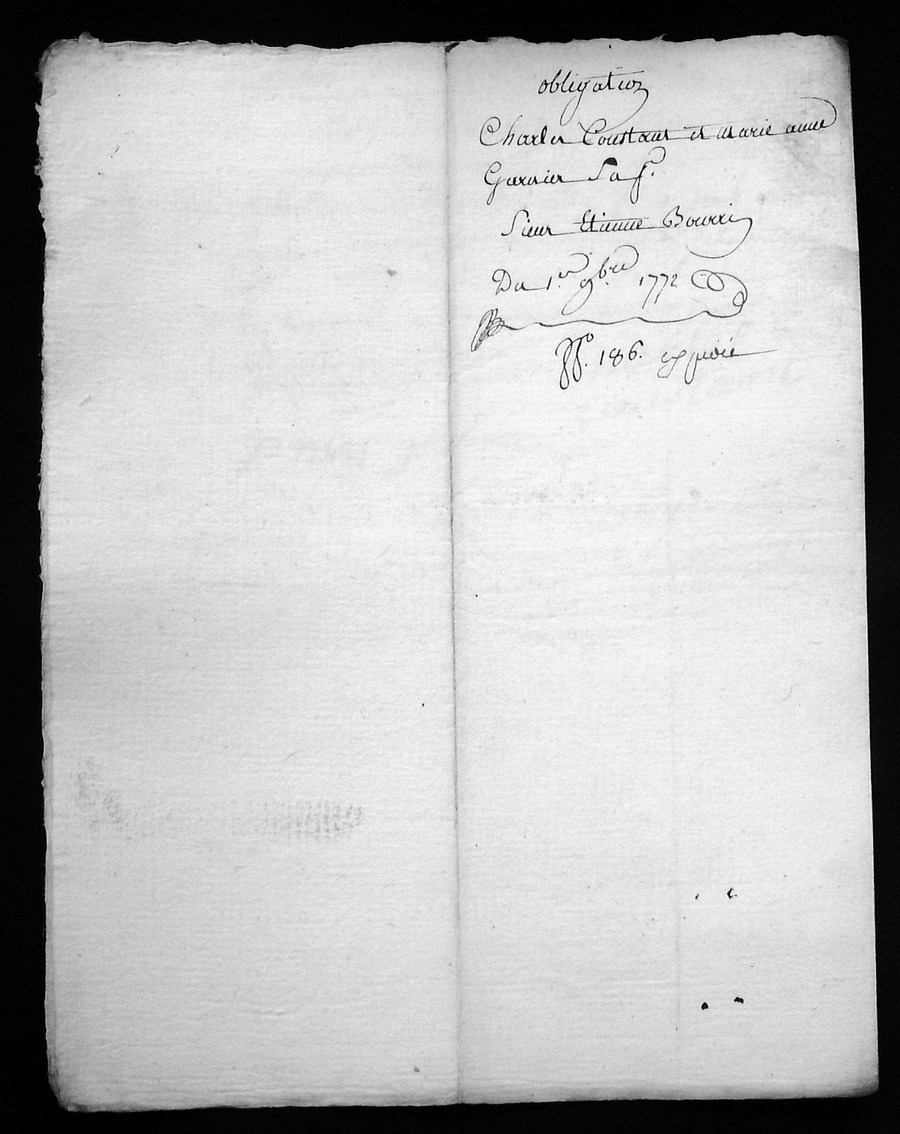 obligation
Charles Constant et marie anne
Garnier Sa f.e
Sieur Etienne Bourri
Du 1.er 9.bre 1772
N.o 186. expedié